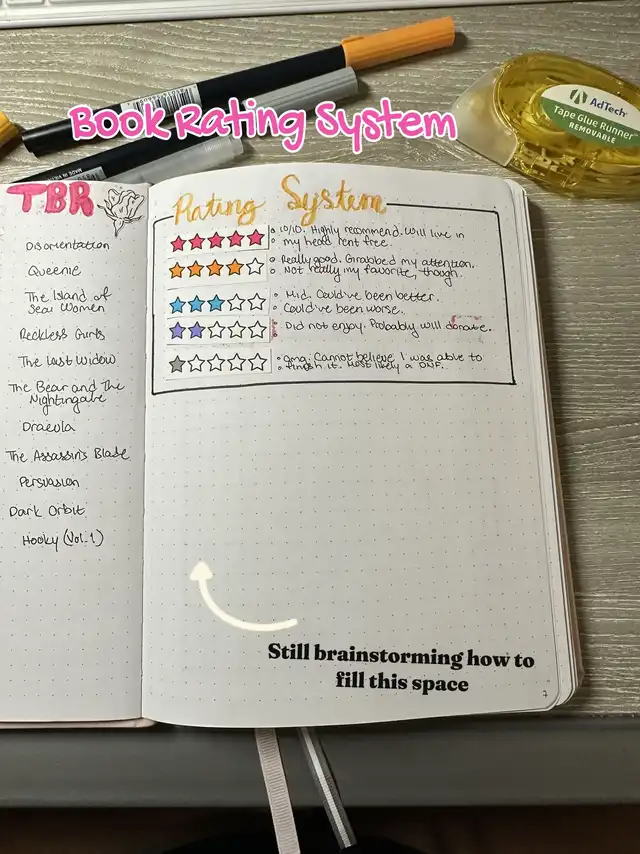 Book Rating System
AdTech
Tape Glue Runner
REMOVABLE
TBR
Disorientation
Queenie
The Island of
Sea Women
Reckless Girls
The Last Widow
The Bear and The
Nightingale
Dracula
The Assassin's Blade
Persuasion
Dark Orbit
Hooky (Vol. 1)
Rating System
10/10. Highly recommend. Will live in
my head rent free.
Really good. Grabbed my attention.
Not really my favorite, though.
Mid. Could've been better.
Could've been worse.
Did not enjoy. Probably will donate.
omg. Cannot believe I was able to
finish it. Most likely a DNF.
Still brainstorming how to
fill this space
7